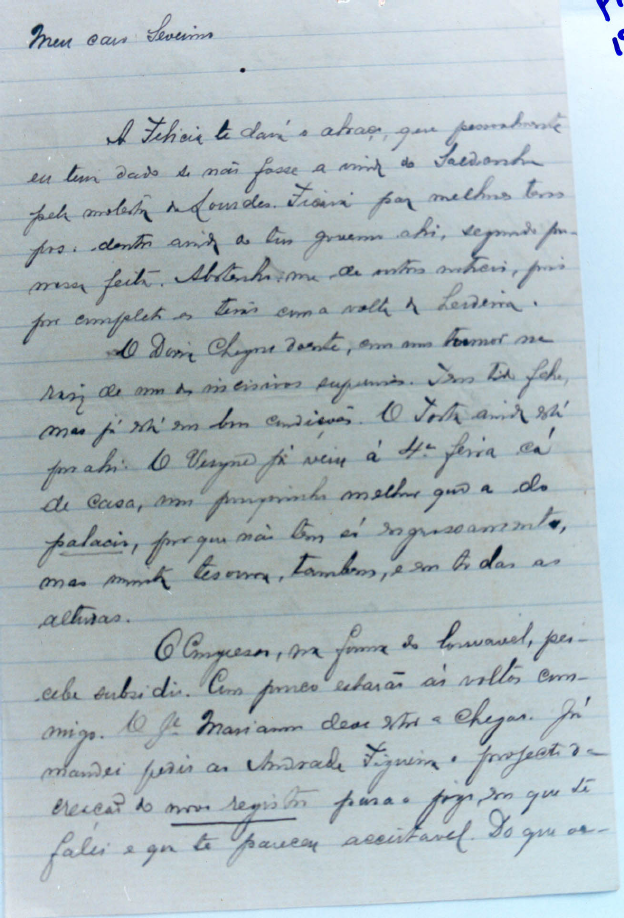 Meu caro Severino
A Felicia te dará o abraço, que pessoalmente
eu teria dado se não fosse a vinda do Saldanha
pela molestia de Lourdes. Ficará par melhores tem-
pos: dentro ainda do teu governo ahi, segundo pro-
messa feita. Abstenho-me de outras noticias, pois
por completo as terás com a volta da
O Doria chegou doente, com um tumor na
raiz de um dos incisivos superiores. Tem tido febre,
mas já está em boas condições. O ainda está
por ahi. O Vergne já veiu á 4ª feira cá
de casa, um melhor que a do
palacio, porque não tem só engrossamento,
mas muita tesoura, tambem, e em todas as
alturas.
O Congresso, na forma do louvavel, per-
cebe subsidio. Com pouco estarão ás voltas com-
migo. O Je. Marianno deve estar a chegar. Já
mandei pedir ao Andrade Figueira o projecto da
creação do novo registro para o jogo, em que te
falei e que te pareceu acceitavel. Do que oc-